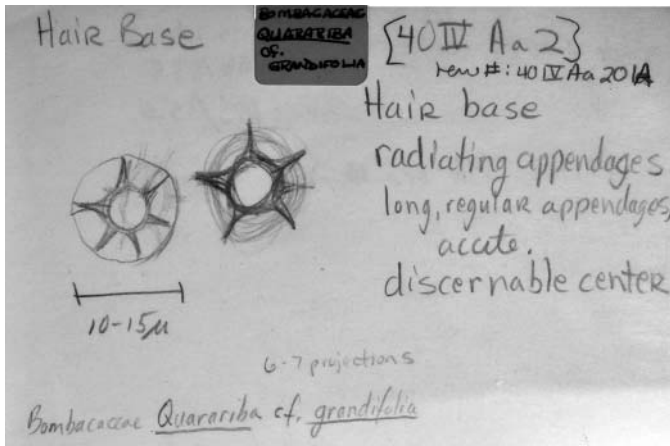 Hair Base
BOMBACACEAE
QUARARIBA
cf.
GRANDIFOLIA
[40 IV Aa 2}
new #: 40 IV Aa 201A
Hair base
radiating appendages
long, regular appendages,
accute.
discernable center
10-15µ
6-7 projections
Bombacaceae Quarariba cf. grandifolia